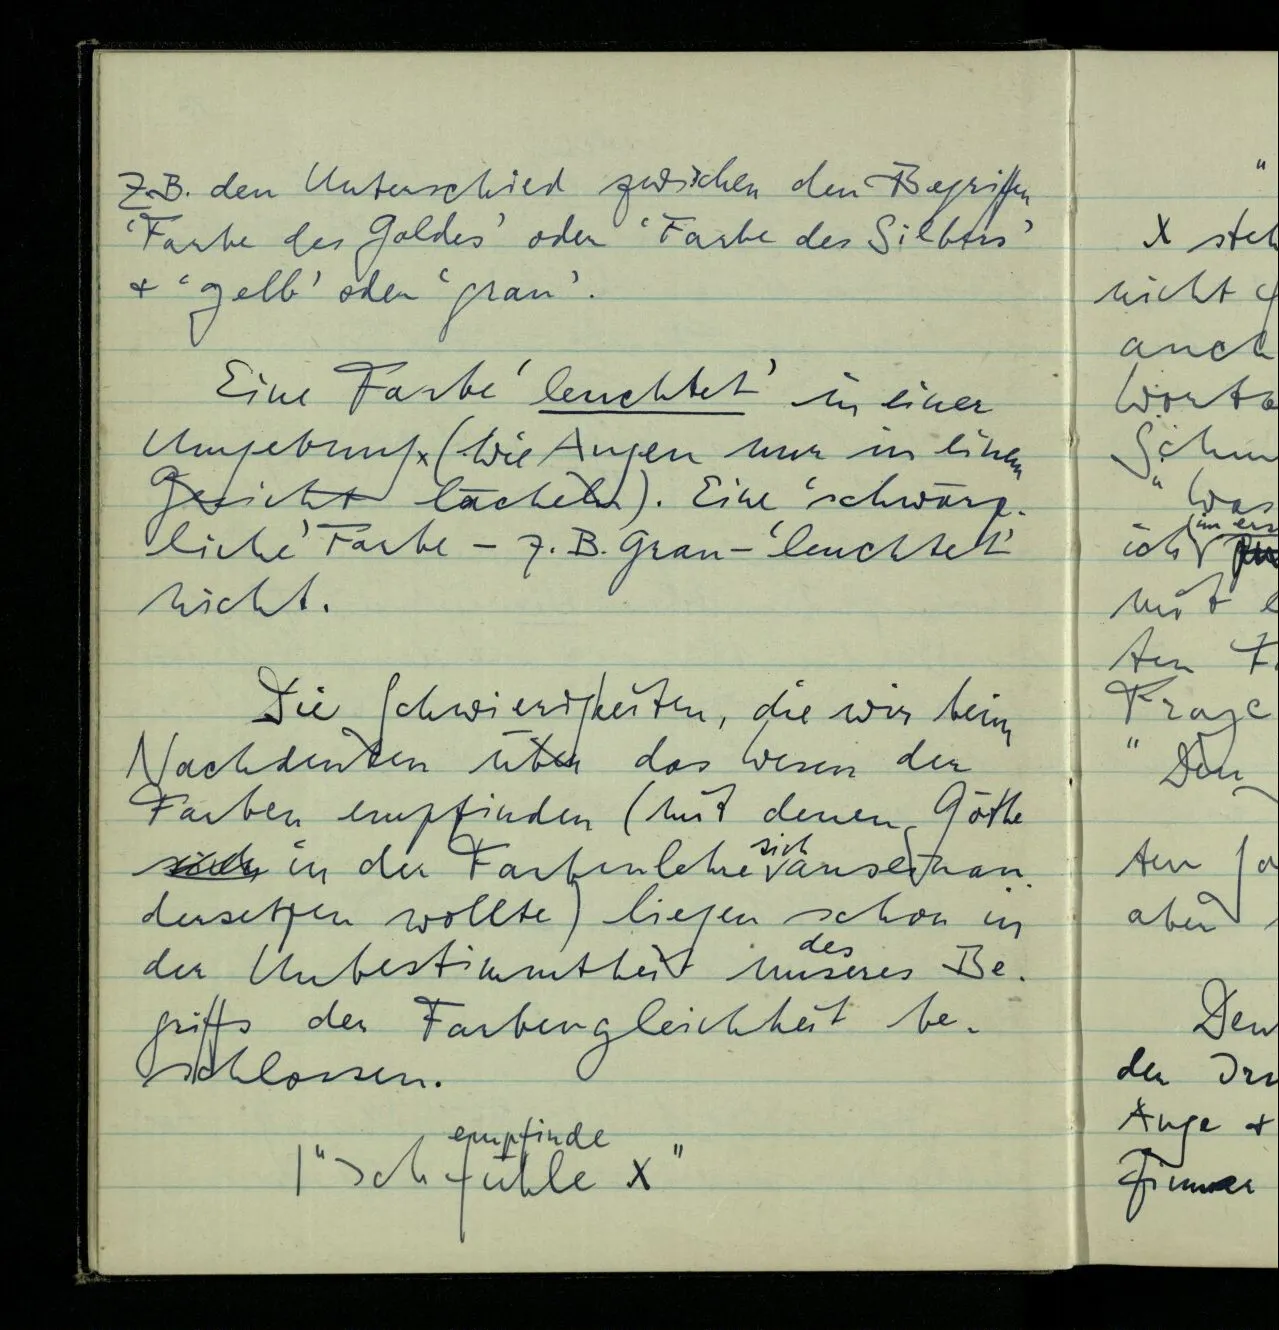 z.B. den Unterschied zwischen den Begriffen
‘Farbe des Goldes’ oder ‘Farbe des Silbers’
+ ‘gelb’ oder ‘grau’.
Eine Farbe ‘leuchtet’ in einer
Umgebung (wie Augen nur in einem
Gesicht lächeln). Eine ‘schwärz-
liche’ Farbe – z.B. Grau – ‘leuchtet’
nicht.
Die Schwierigkeiten, die wir beim
Nachdenken über das Wesen der
Farben empfinden (mit denen Göthe
sich in der Farbenlehre sich auseinan-
dersetzen wollte) liegen schon in
der Unbestimmtheit unseres des Be-
griffs der Farbengleichheit be-
schlossen.
empfinde
|"Ich fühle X"
"
X steh
nicht
auch
Worte
"Was
ich
mit
ten
Frage
"Den
ten
aber
Den
der
Auge +
Zimmer